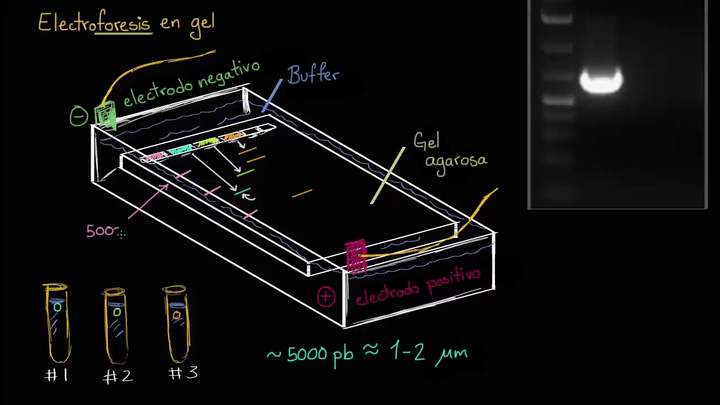 Electroforesis en gel
electrodo negativo
Buffer
Gel
agarosa
500
electrodo positivo
~ 5000 pb ≈ 1-2 μm
#1 #2 #3